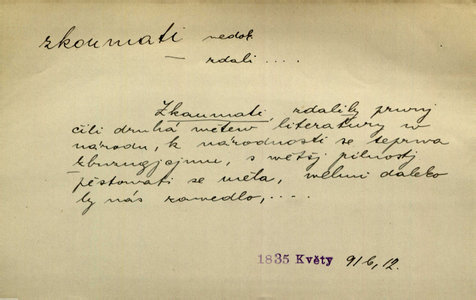 zkoumati nedok
— zdali ....
Zkaumati, zdaliby prwnj
čili druhá wětew literatury w
národu, k národnosti se teprwa
zbuzugjcjmu, s wětšj pilnostj
pěstowati se měla, welmi daleko
by nás zawedlo, ....
1835 Květy 91b, 12.